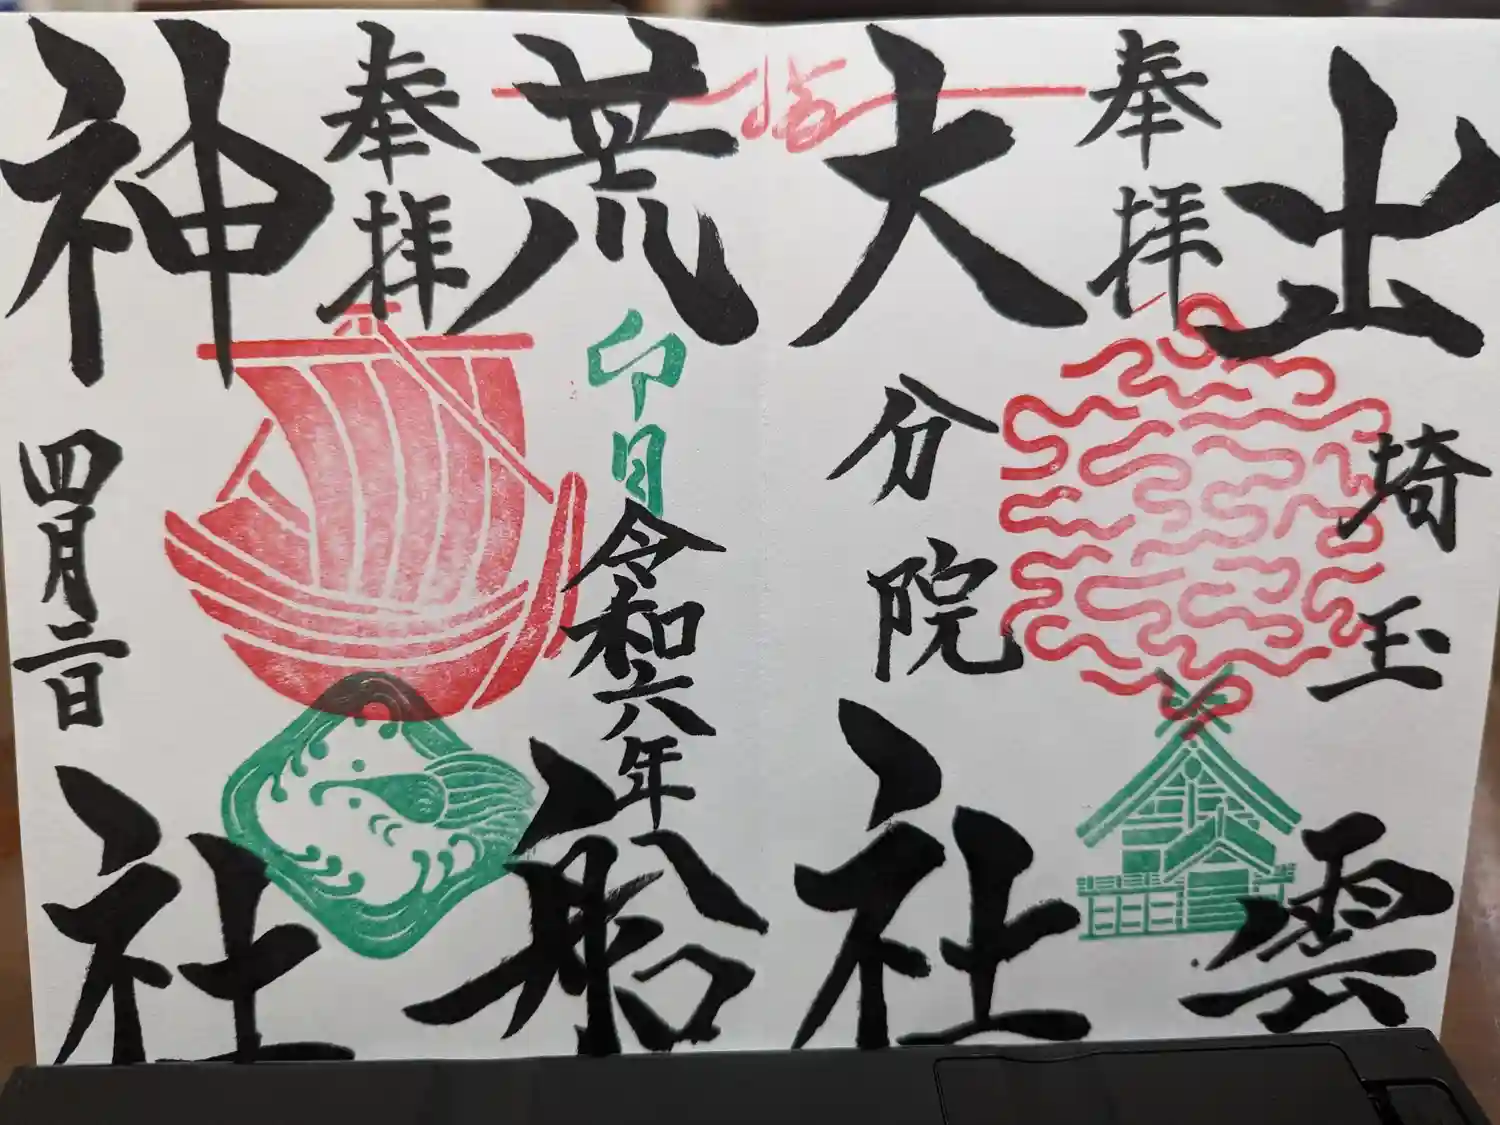 出雲
埼玉
奉拝
大社
分院
荒船
卯月
令和六年
奉拝
神社
四月二日